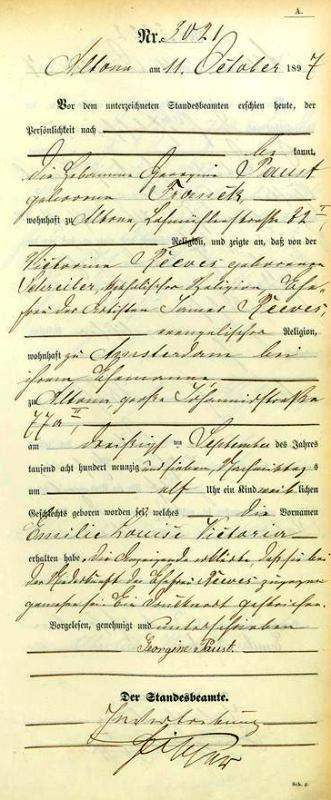 A.
Nr. 3021
Altona am 11. October 1897
Vor dem unterzeichneten Standesbeamten erschien heute, der
Persönlichkeit nach
be kannt,
die Hebamme Georgine Paust
geborene Franck
wohnhaft zu Altona, Lohmühlenstraße 82 II,
Religion, und zeigte an, daß von der
Victorine Reeves geborenen
Schreiber, katholischer Religion, Ehe-
frau des Artisten James Reeves,
evangelischer Religion,
wohnhaft zu Amsterdam bei
ihrem Ehemanne
zu Altona große Johannisstraße
77a II,
am dreißigsten September des Jahres
tausend acht hundert neunzig und sieben, Nachmittags
um elf Uhr ein Kind weiblichen
Geschlechts geboren worden sei, welches die Vornamen
Emilie Louise Victoria
erhalten habe. Die Anzeigende erklärte, daß sie bei
der Niederkunft der Ehefrau Reeves zugegen
gewesen sei. Ein Druckwort gestrichen.
Vorgelesen, genehmigt und unterschrieben
Georgine Paust.
Der Standesbeamte.
In Vertretung